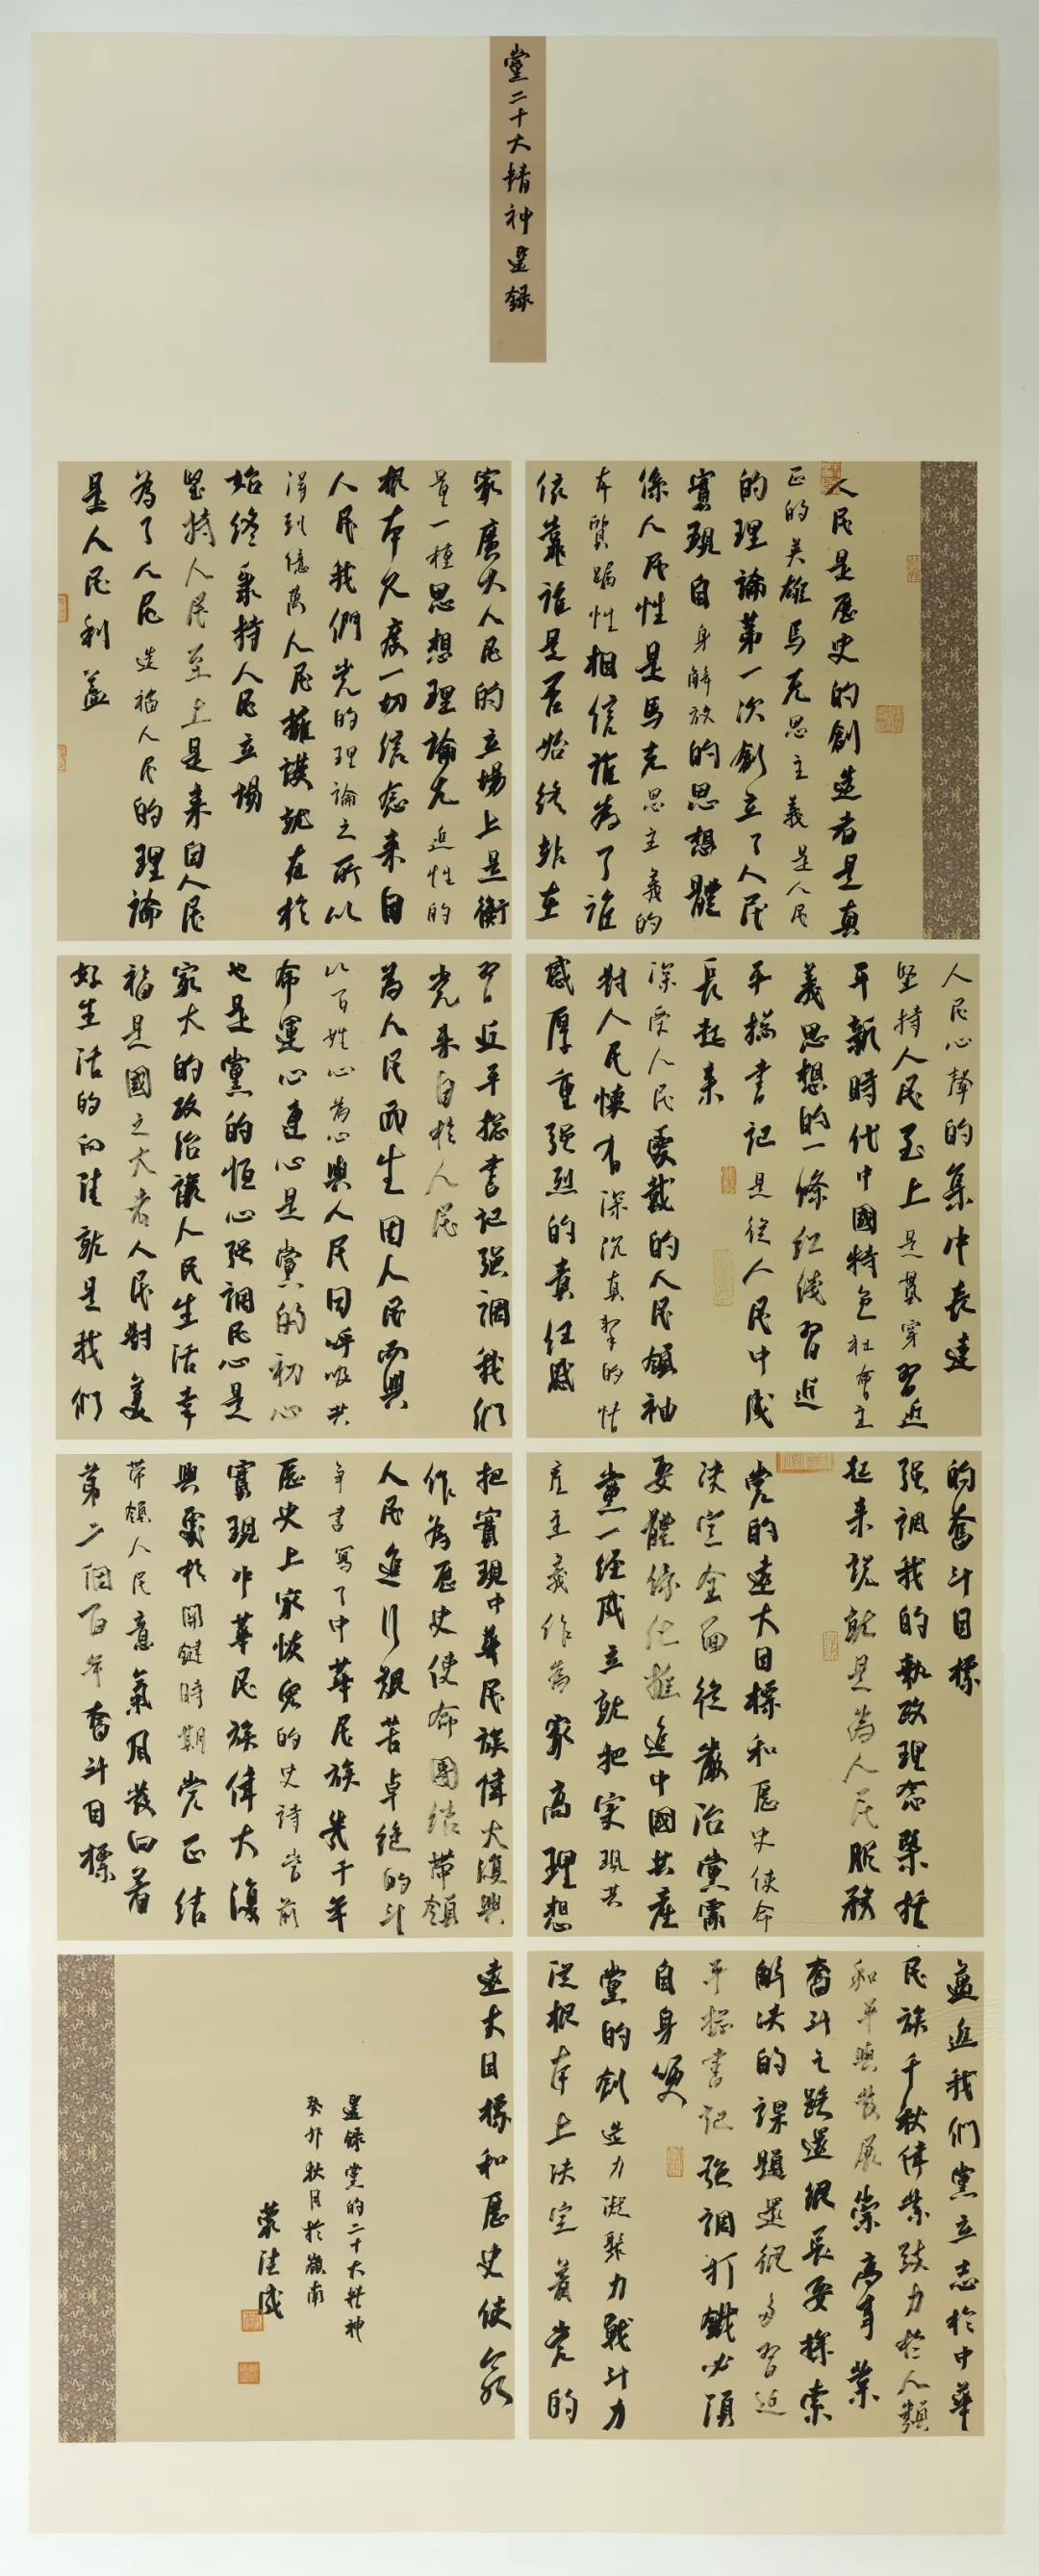 黨二十大精神選録
人民是歷史的創造者是真
正的英雄馬克思主義是人民
的理論第一次創立了人民
實現自身解放的思想體
係人民性是馬克思主義的
本質屬性相信誰為了誰
依靠誰是否始終站在
最廣大人民的立場上是衡
量一種思想理論先進性的
根本尺度一切信念来自
人民我們党的理論之所以
得到億萬人民擁護就在於
始終秉持人民立場
堅持人民至上是来自人民
為了人民造福人民的理論
是人民利益
人民心聲的集中表達
坚持人民至上是貫穿習近
平新時代中國特色社會主
義思想的一條红线習近
平總書記是從人民中成
長起来
深受人民愛戴的人民領袖
對人民懷有深沉真摯的情
感厚重强烈的責任感
習近平總書記强調我们
党来自於人民
為人民而生因人民而興
以百姓心為心與人民同呼吸共
命運心連心是黨的初心
也是黨的恒心强調民心是
最大的政治讓人民生活幸
福是國之大者人民對美
好生活的向往就是我们
的奮斗目標
强調我的執政理念槩括
起来説就是為人民服務
党的遠大目標和歷史使命
决定全面從嚴治黨需
要體係化推進中國共産
黨一經成立就把实現共
産主義作為最高理想
把實現中華民族偉大復興
作為歷史使命團结帶領
人民進行艱苦卓绝的斗
争書寫了中華民族幾千年
歷史上最恢宏的史詩當前
實現中華民族偉大復
興處於關鍵時期党正结
带領人民意氣風發向着
第二個百年奮斗目標
邁近我们黨立志於中華
民族千秋偉業致力於人類
和平與發展崇高事業
奮斗之路還很長要探索
解决的課題還很多習近
平總書記强調打鐵必須
自身硬
黨的創造力凝聚力戰斗力
從根本上决定着党的
遠大目標和歷史使命
選録黨的二十大精神
癸卯秋月於嶺南